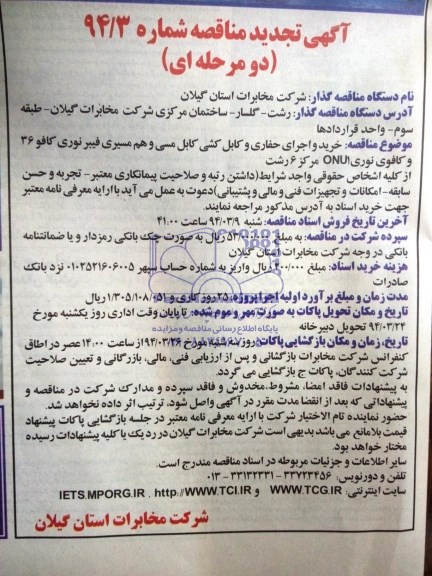 آگهی تجدید مناقصه شماره ۹۴/۳
(دو مرحله ای)
نام دستگاه مناقصه گذار: شرکت مخابرات استان گیلان
آدرس دستگاه مناقصه گذار: رشت- گلسار- ساختمان مرکزی شرکت مخابرات گیلان- طبقه
سوم- واحد قراردادها
موضوع مناقصه: خرید و اجرای حفاری و کابل کشی کابل مسی و هم مسیری فیبر نوری کافو ۳۶
و کافوی نوری ONU۱ مرکز ۶ رشت
از کلیه اشخاص حقوقی واجد شرایط (داشتن رتبه و صلاحیت پیمانکاری معتبر- تجربه و حسن
سابقه- امکانات و تجهیزات فنی و مالی و پشتیبانی) دعوت به عمل می آید با ارایه معرفی نامه معتبر
جهت خرید اسناد به آدرس مذکور مراجعه نمایند.
آخرین تاریخ فروش اسناد مناقصه: شنبه ۹۴/۰۳/۹ ساعت
سپرده شرکت در مناقصه: به مبلغ ریال به صورت چک بانکی رمزدار و یا ضمانتنامه
بانکی در وجه شرکت مخابرات استان گیلان
هزینه خرید اسناد: مبلغ ۲۰۰/۰۰۰ ریال واریز به شماره حساب سپهر ۰۱۰۲۵۲۱۶۰۶۰۰۵ نزد بانک
صادرات
مدت زمان و مبلغ برآورد اولیه اجرا پروژه: روز کاری و ۱/۳۰۵/۱۰۸/۰۵۱ ریال
تاریخ و مکان تحویل پاکات به صورت مهر و موم شده: تا پایان وقت اداری روز یکشنبه مورخ
۹۴/۰۳/۲۴ تحویل دبیرخانه
تاریخ، زمان و مکان بازگشایی پاکات: روز سه شنبه مورخ ۹۴/۰۳/۲۶ از ساعت ۱۴:۰۰ عصر در اطاق
کنفرانس شرکت مخابرات بازگشائی و پس از ارزیابی فنی، مالی، بازرگانی و تعیین صلاحیت
شرکت کنندگان، پاکات ج بازگشایی می گردد.
به پیشنهادات فاقد امضا، مشروط، مخدوش و فاقد سپرده و مدارک شرکت در مناقصه و
پیشنهاداتی که بعد از انقضا مدت مقرر در آگهی واصل شود، ترتیب اثر داده نخواهد شد.
حضور نماینده تام الاختیار شرکت با ارایه معرفی نامه معتبر در جلسه بازگشایی پاکات پیشنهاد
قیمت بلامانع می باشد بدیهی است شرکت مخابرات گیلان در رد یک یا کلیه پیشنهادات رسیده
مختار خواهد بود.
سایر اطلاعات و جزئیات مربوطه در اسناد مناقصه مندرج است.
تلفن و دورنویس: ۳۳۷۲۳۴۵۶ - ۳۳۱۳۲۳۳۱ - ۰۱۳
سایت اینترنتی: WWW.TCG.IR و IETS.MPORG.IR , http://WWW.TCI.IR
شرکت مخابرات استان گیلان
پایگاه اطلاع رسانی مناقصه و مزایده